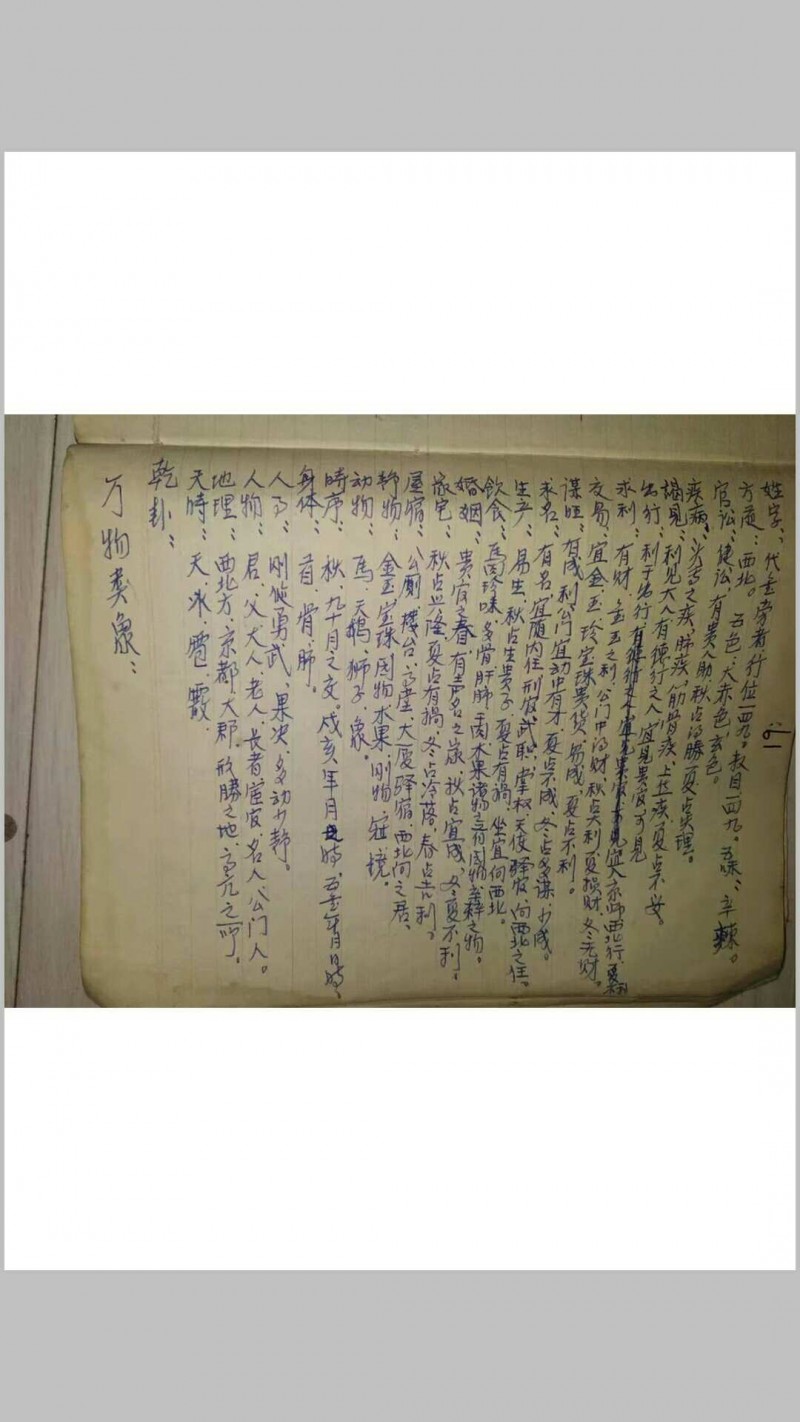 万物类象：
乾卦：
天時：天、冰、雹、霰、
地理：西北方、京都、大郡、形勝之地、高亢之所。
人物：君、父、大人、老人、長者、宦官、名人、公门人。
人事：刚健勇武、果决、多动少静。
身体：首、骨、肺。
時序：秋、九十月之交、戍亥年月日時、五金年月日時、
动物：馬、天鹅、狮子、象。
静物：金玉、宝珠、园物、水果、刚物、冠、境。
屋宿：公厕、楼台、高堂、大厦、驿宿、西北向之居、
家宅：秋占兴隆、夏占有禍、冬占冷落、春占吉利、
婚姻：贵官之眷、有声名之家、秋占宜成、冬夏不利。
飲食：馬肉珍味、多骨、肝肺、干肉、水果、諸物之首、园物、辛辣之物。
生产：易生、秋占生贵子、夏占有禍、坐宜向西北。
求名：有名、宜随内任、刑官、武职、掌权、天使、驿官、向西北之任。
謀旺：有成、利公门、宜动中有才、夏占不成、冬占多謀少成。
交易：宜金、玉、玲宝珠贵货、易成、夏占不利。
求利：有财、金玉之利、公门中得财、秋占大利、夏损财、冬无财。
出行：利于出行、宜入京师、西北行、夏不利
謁見：利見大人、有德行之人、宜見贵官、可見
疾病：头面之疾、肺疾、筋骨疾、上焦疾、夏占不安。
官讼：健讼、有贵人助、秋占得勝、夏占失理。
方道：西北。五色：大赤色、玄色。
姓字：代金旁者、行位一四九。数目一四九。五味：辛辣。